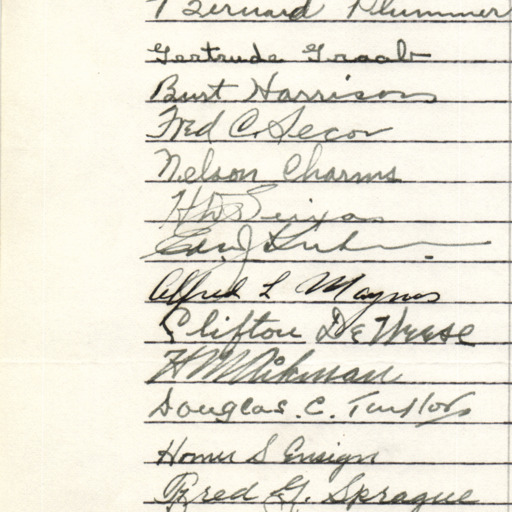 Bernard Plummer
Gertrude Graab
Burt Harrison
Fred C. Secor
Nelson Charms
H. D. Seixas
J
Alfred L Maynes
Clifton DeWeese
H M Aikman
Douglas. C.
Homer S Ensign
Fred G. Sprague